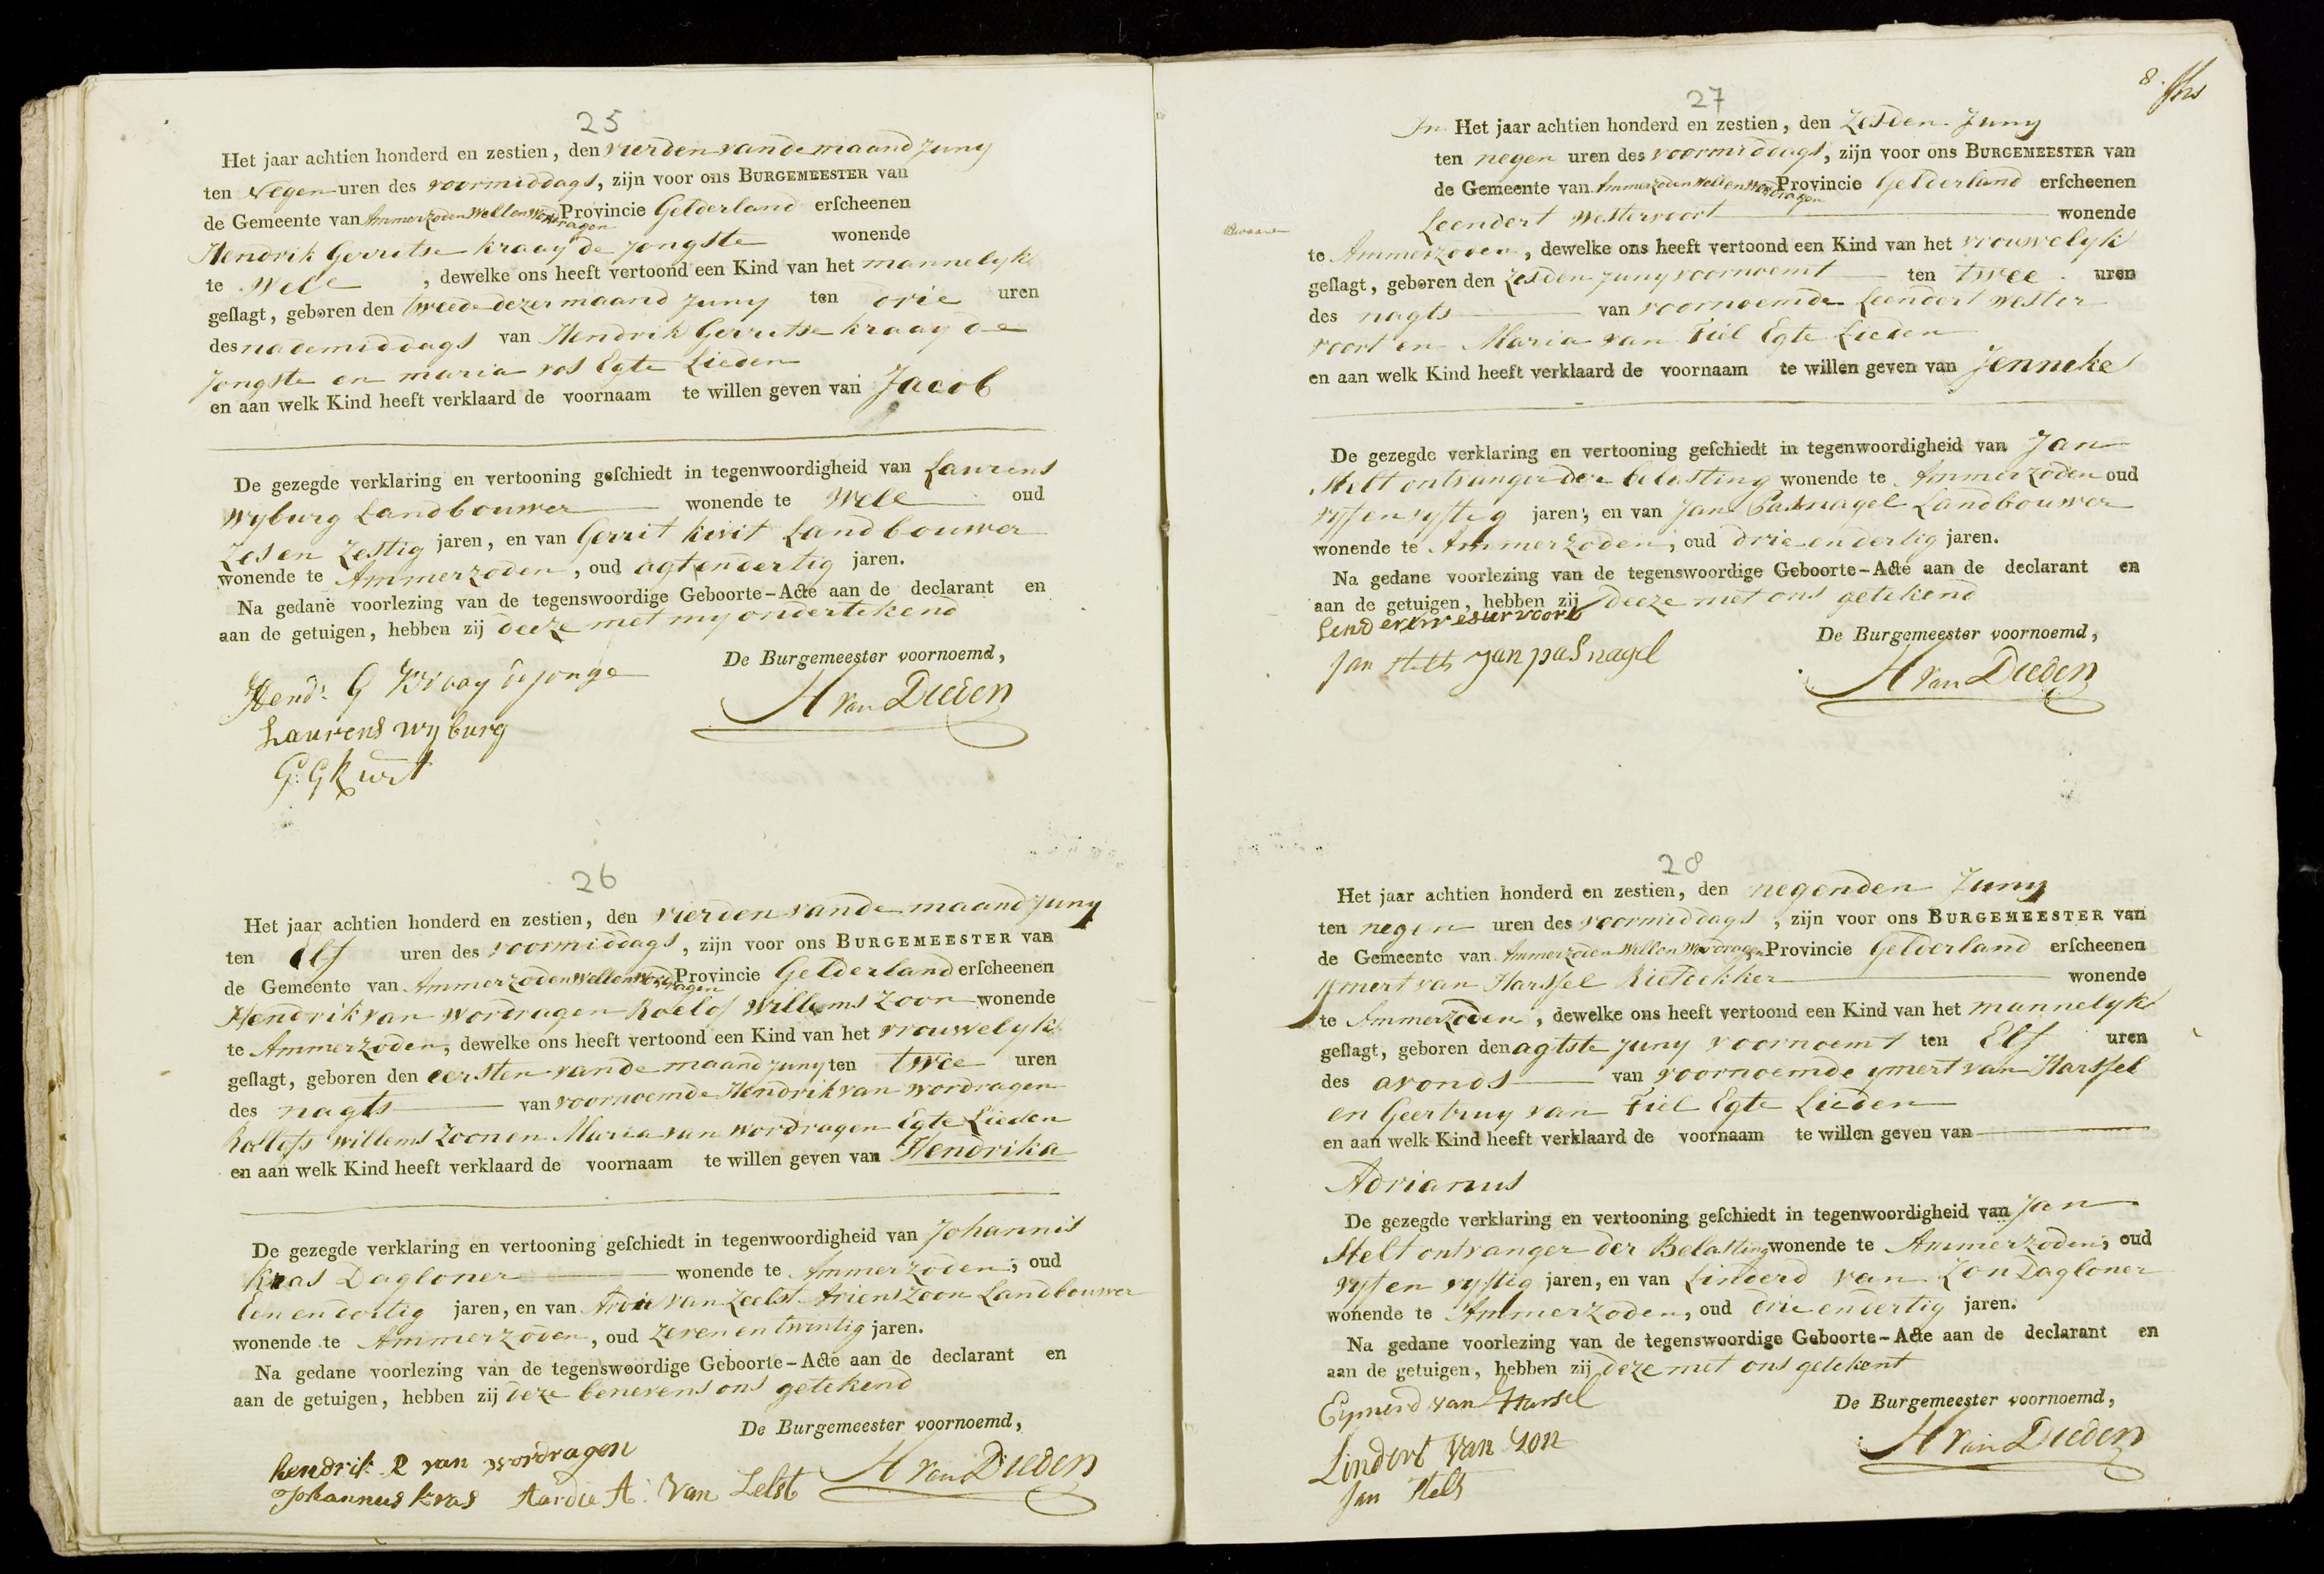 25
Het jaar achtien honderd en zestien, den vierden vande maand Juny
ten Negen uren des voormiddags, zijn voor ons BURGEMEESTER van
de Gemeente van Ammerzoden Wellen Wordragen Provincie Gelderland erscheenen
Hendrik Gerritse kraay de Jongste wonende
te Wele, dewelke ons heeft vertoond een Kind van het mannelyk
geslagt, geboren den tweede dezer maand Juny ten drie uren
des nademiddags van Hendrik Gerritse kraay de
Jongste en maria vos Egte Lieden
en aan welk Kind heeft verklaard de voornaam te willen geven van Jacob
De gezegde verklaring en vertooning geschiedt in tegenwoordigheid van Laurens
Wyburg Landbouwer wonende te Wele oud
Zes en Zestig jaren, en van Gerrit kivit Landbouwer
wonende te Ammerzoden, oud agt en dertig jaren.
Na gedane voorlezing van de tegenswoordige Geboorte-Acte aan de declarant en
aan de getuigen, hebben zij deeze met my ondertekend
De Burgemeester voornoemd,
Hend: G Kraay de jonge
H van Dieden
Laurens wyburg
G: G
26
Het jaar achtien honderd en zestien, den vierden vande maand Juny
ten Elf uren des voormiddags, zijn voor ons BURGEMEESTER van
de Gemeente van Ammerzoden Wellen Wordragen Provincie Gelderland erscheenen
Hendrik van Wordragen Roelof Willems Zoon wonende
te Ammerzoden, dewelke ons heeft vertoond een Kind van het vrouwelyk
geslagt, geboren den eersten vande maand Juny ten twee uren
des nagts van voornoemde Hendrik van Wordragen
Roelofs Willems Zoon en Maria van Wordragen Egte Lieden
en aan welk Kind heeft verklaard de voornaam te willen geven van Hendrika
De gezegde verklaring en vertooning geschiedt in tegenwoordigheid van Johannis
Kras Dagloner wonende te Ammerzoden, oud
een en dertig jaren, en van van Zeelst Ariens Zoon Landbouwer
wonende te Ammerzoden, oud Zeven en twintig jaren.
Na gedane voorlezing van de tegenswoordige Geboorte-Acte aan de declarant en
aan de getuigen, hebben zij deze benevens ons getekend
De Burgemeester voornoemd,
hendrik R van wordragen
Johannus kras Aardie A: Van Zelst H van Dieden
8.
27
In Het jaar achtien honderd en zestien, den Zesden Juny
ten negen uren des voormiddags, zijn voor ons BURGEMEESTER van
de Gemeente van Ammerzoden Wellen Wordragen Provincie Gelderland erscheenen
Leendert Westervoort wonende
te Ammerzoden, dewelke ons heeft vertoond een Kind van het vrouwelyk
geslagt, geboren den Zesden Juny voornoemt ten twee uren
des nagts van voornoemde Leendert Wester
voort en Maria van Tiel Egte Lieden
en aan welk Kind heeft verklaard de voornaam te willen geven van Jenneke
De gezegde verklaring en vertooning geschiedt in tegenwoordigheid van Jan
Stelt ontvanger der belasting wonende te Ammerzoden oud
vyf en vyftig jaren, en van Jan Pasnagel Landbouwer
wonende te Ammerzoden, oud drie en dertig jaren.
Na gedane voorlezing van de tegenswoordige Geboorte-Acte aan de declarant en
aan de getuigen, hebben zij deeze met ons getekend
De Burgemeester voornoemd,
Jan Stelt Jan pasnagel
H van Dieden
28
Het jaar achtien honderd en zestien, den negenden Juny
ten negen uren des voormiddags, zijn voor ons BURGEMEESTER van
de Gemeente van Ammerzoden Wellen Wordragen Provincie Gelderland erscheenen
Ymert van Harssel Rietdekker wonende
te Ammerzoden, dewelke ons heeft vertoond een Kind van het mannelyk
geslagt, geboren den agtste Juny voornoemt ten Elf uren
des avonds van voornoemde ymert van Harssel
en Geertruy van Tiel Egte Lieden
en aan welk Kind heeft verklaard de voornaam te willen geven van
Adrianus
De gezegde verklaring en vertooning geschiedt in tegenwoordigheid van Jan
Stelt ontvanger der Belasting wonende te Ammerzoden, oud
vyf en vyftig jaren, en van Linderd van Zon Dagloner
wonende te Ammerzoden, oud drie en dertig jaren.
Na gedane voorlezing van de tegenswoordige Geboorte-Acte aan de declarant en
aan de getuigen, hebben zij deze met ons getekent
De Burgemeester voornoemd,
Eymerd van Harsel
H van Dieden
Lindert van zon
Jan Stelt